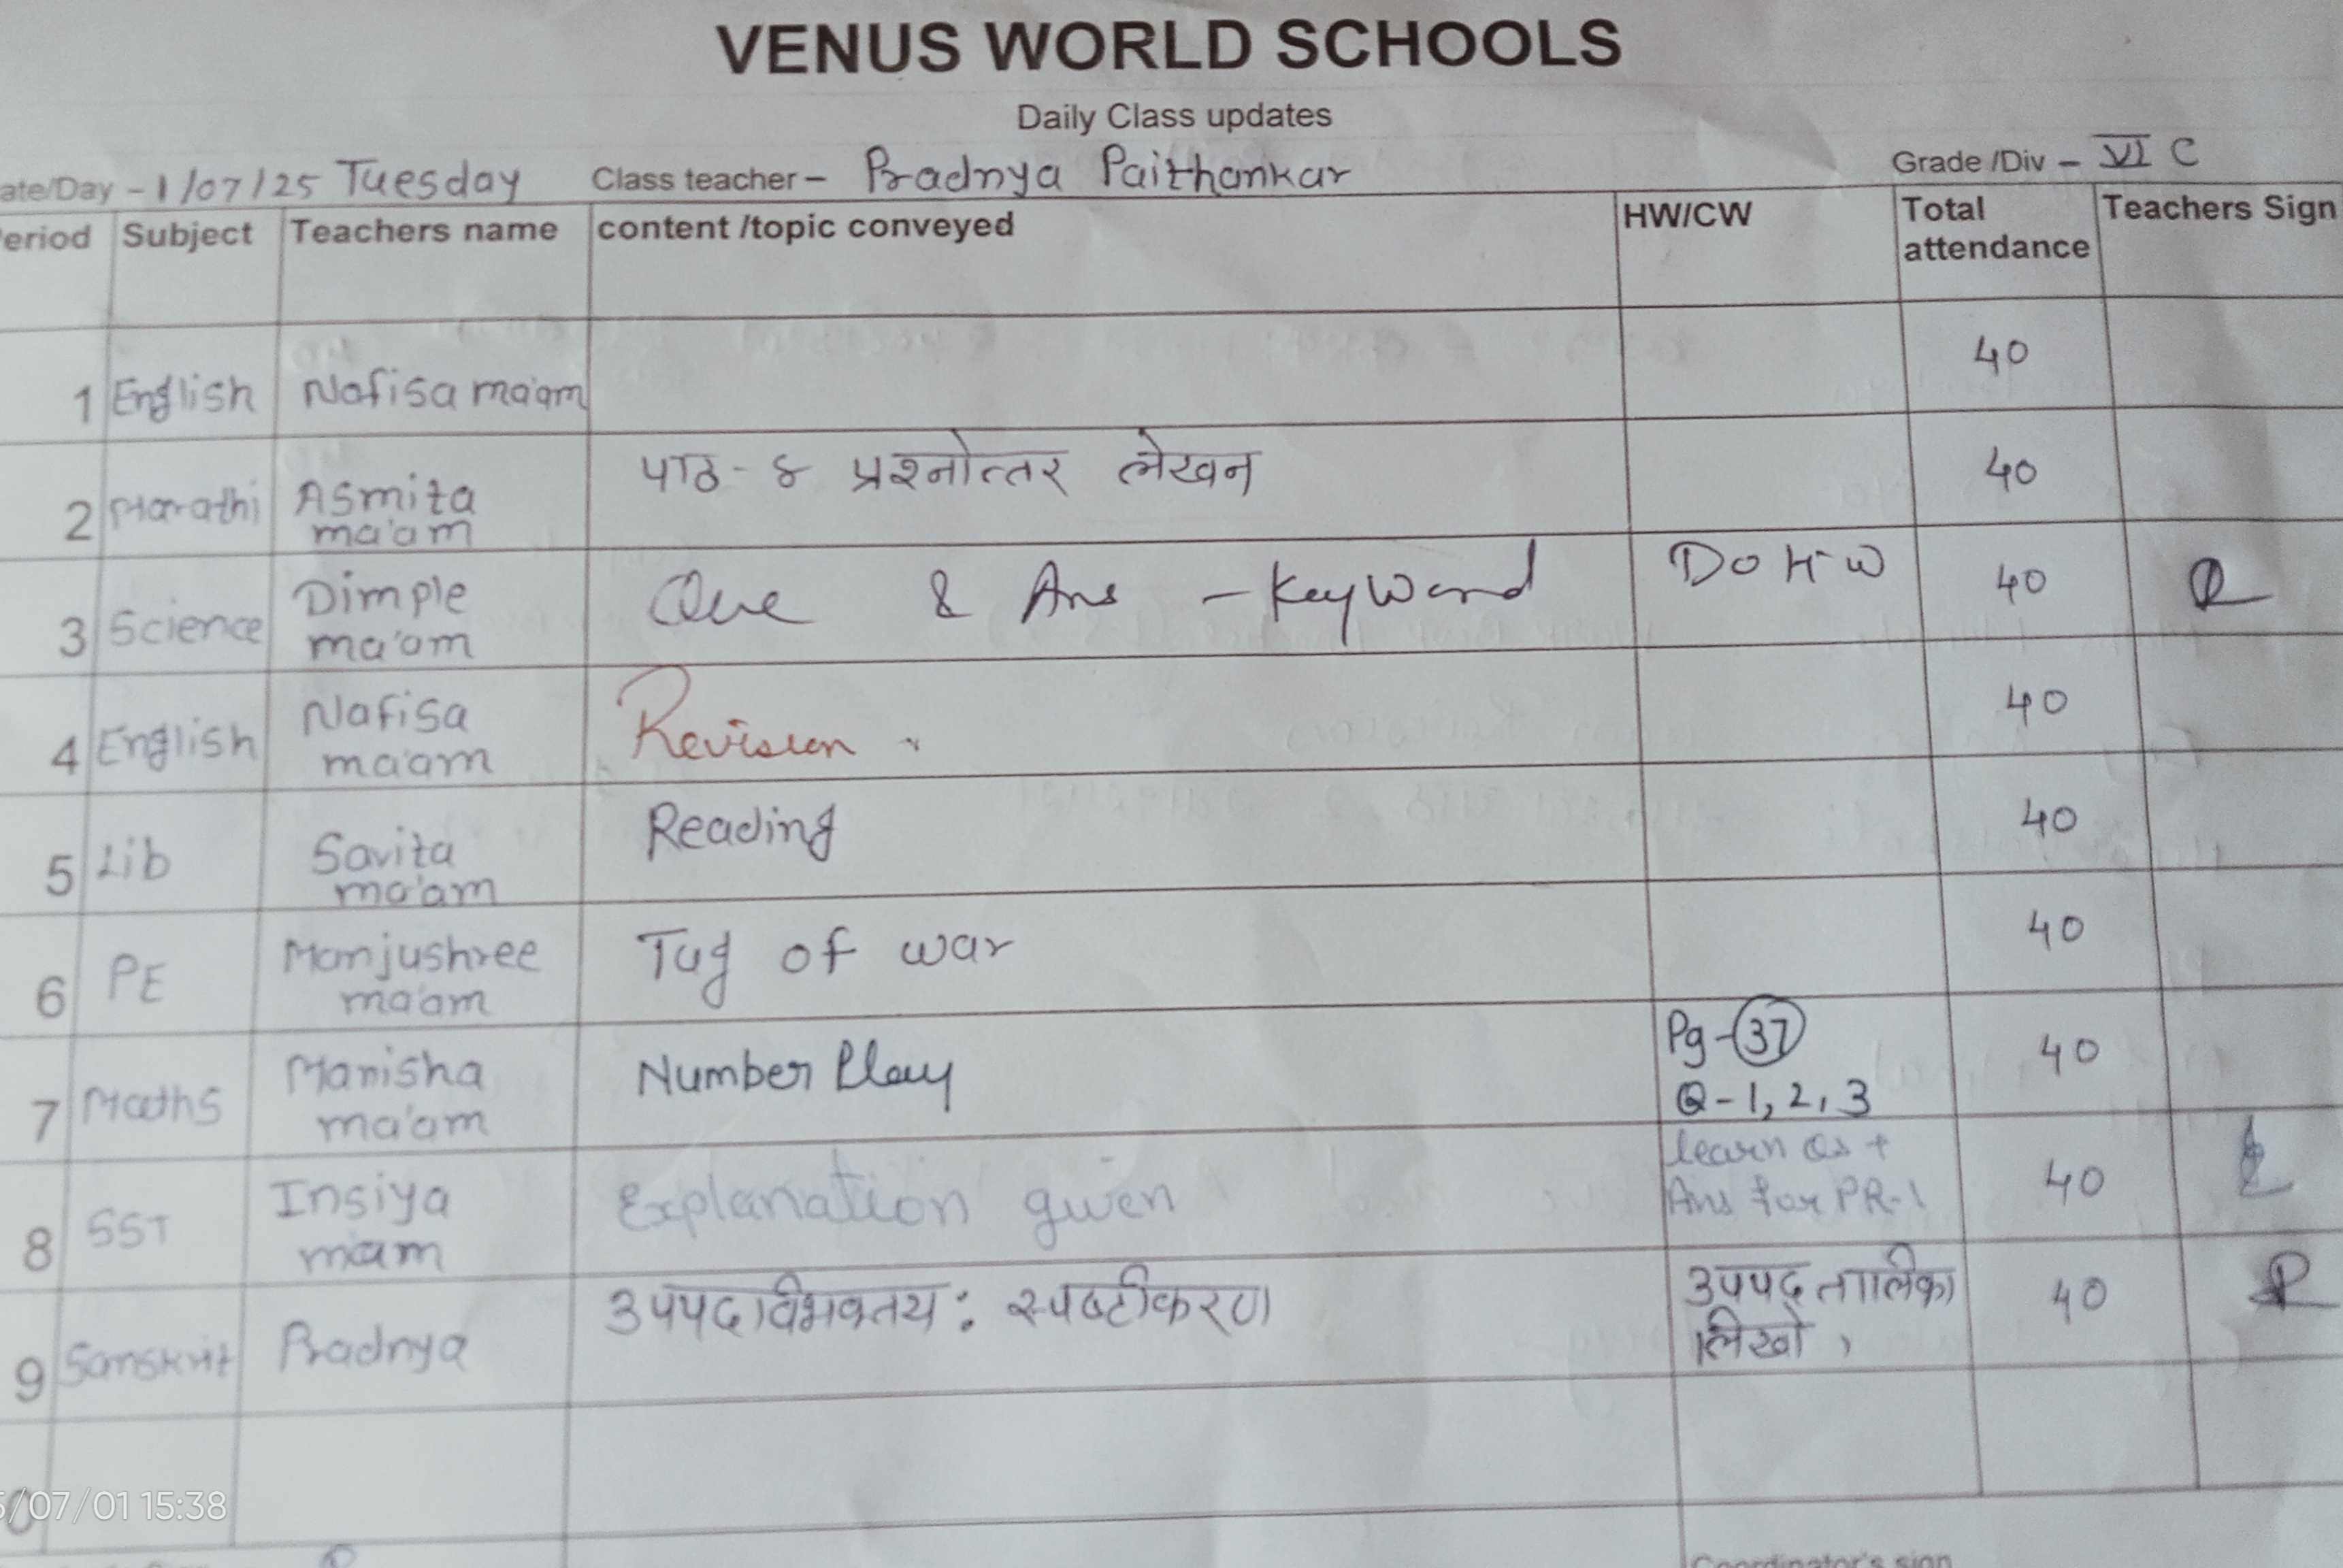 VENUS WORLD SCHOOLS
Daily Class updates
ate/Day - 1/07/25 Tuesday Class teacher - Pradnya Paithankar Grade /Div - VI C
eriod Subject Teachers name content /topic conveyed HW/CW Total attendance Teachers Sign
1 English Nafisa ma'am 40
2 Marathi Asmita ma'am पाठ - ४ प्रश्नोत्तर लेखन 40
3 Science Dimple ma'am Que & Ans - Keyword Do H-W 40
4 English Nafisa ma'am Revision . 40
5 Lib Savita ma'am Reading 40
6 PE Manjushree ma'am Tug of war 40
7 Maths Manisha ma'am Number Play Pg - 37 Q - 1, 2, 3 40
8 SST Insiya mam Explanation given learn Qs + Ans for PR-1 40
9 Sanskrit Pradnya उपपदविभक्तय: स्पष्टीकरण उपपद तालिका लिखो , 40
/07/01 15:38
Coordinator's sign